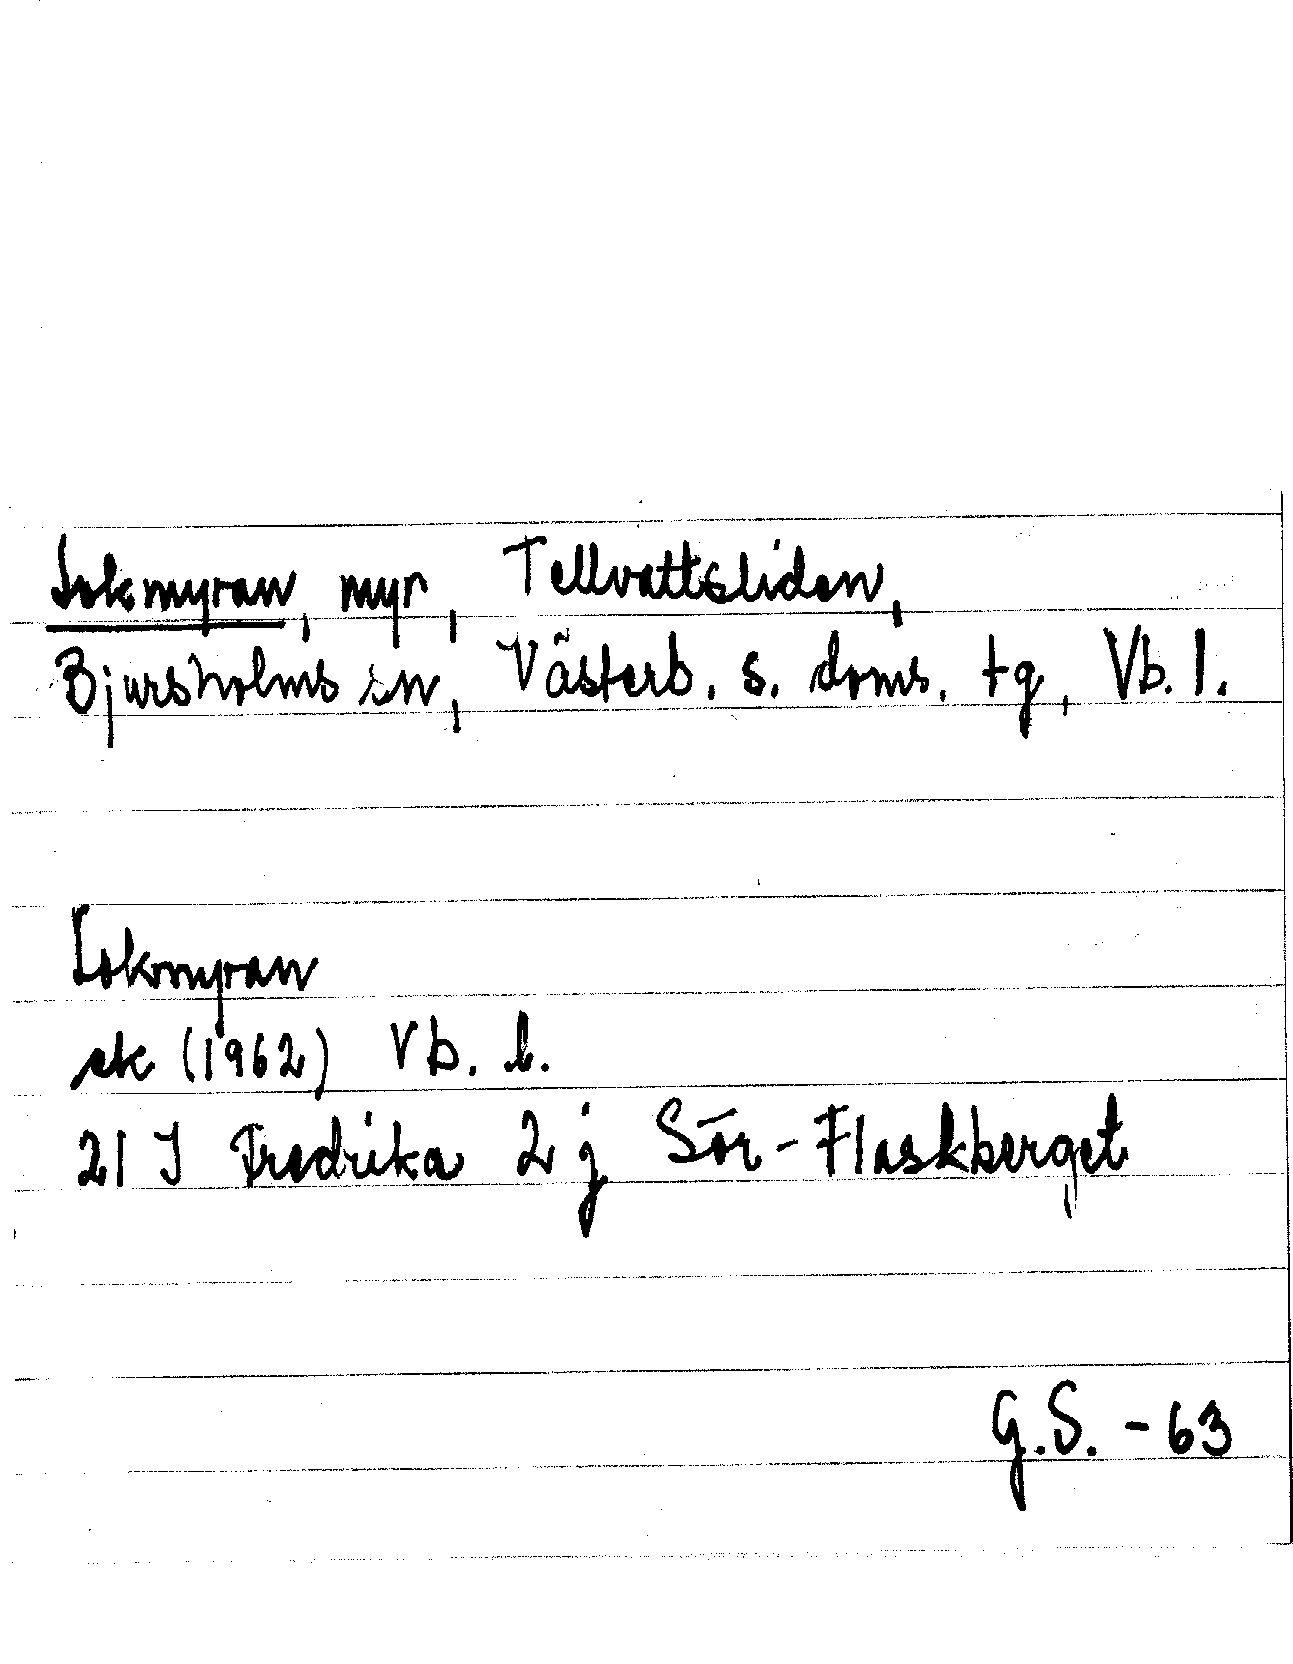 Lokmyran, myr, Tellvattsliden,
Bjursholms sn, Västerb. s. doms. tg, Vb. l.
Lokmyran
ek (1962) Vb. l.
21 J Fredrika 2 j Sör-Flaskberget
G.S. - 63